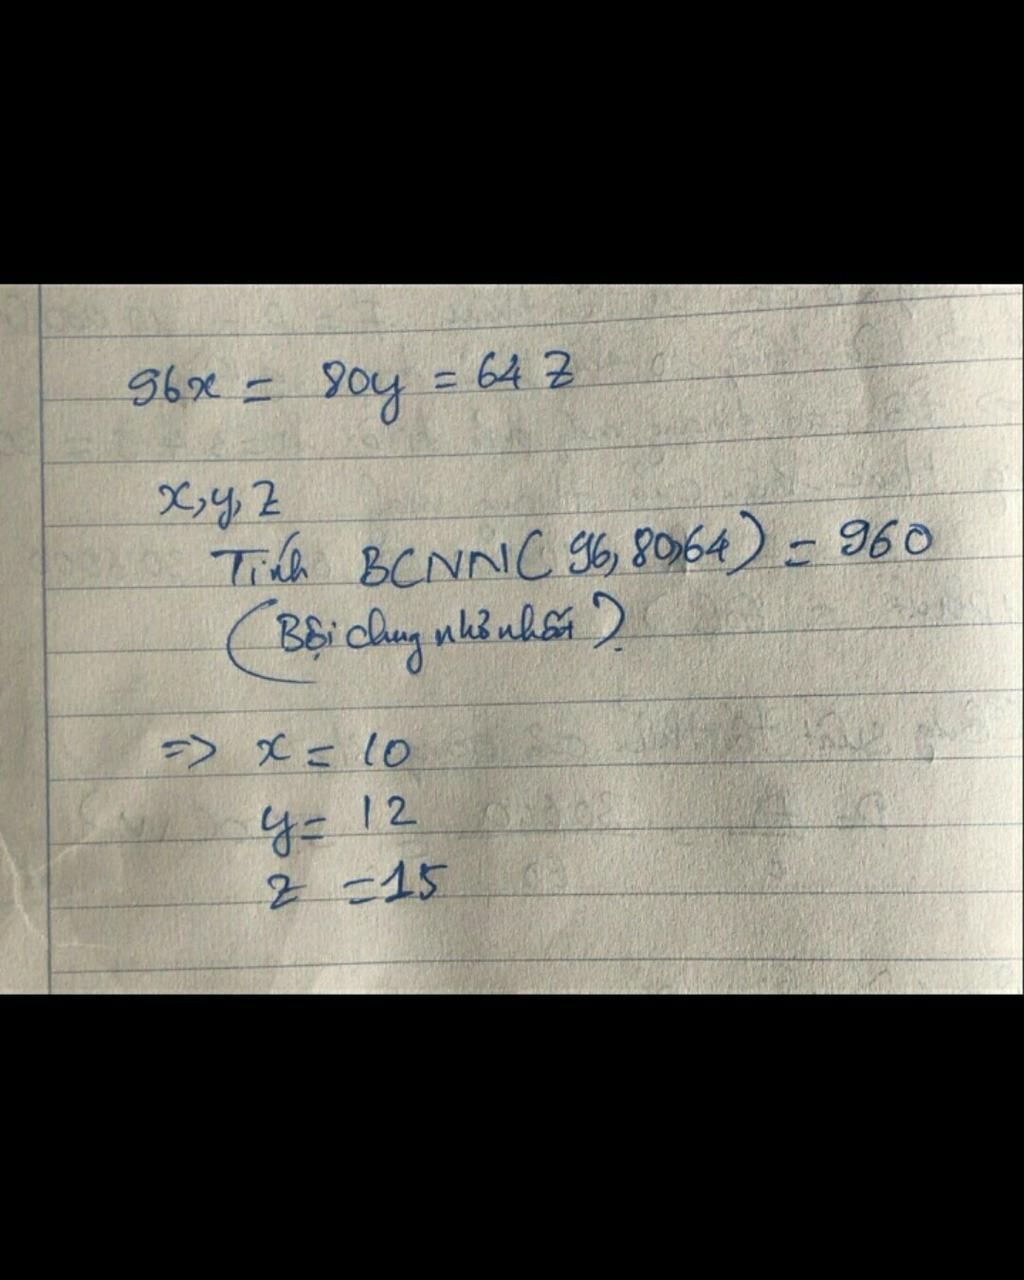 96x = 80y = 64 Z
x, y, z
Tính BCNN( 96, 80, 64 ) = 960
( Bội chung nhỏ nhất ).
=> x = 10
y = 12
z = 15